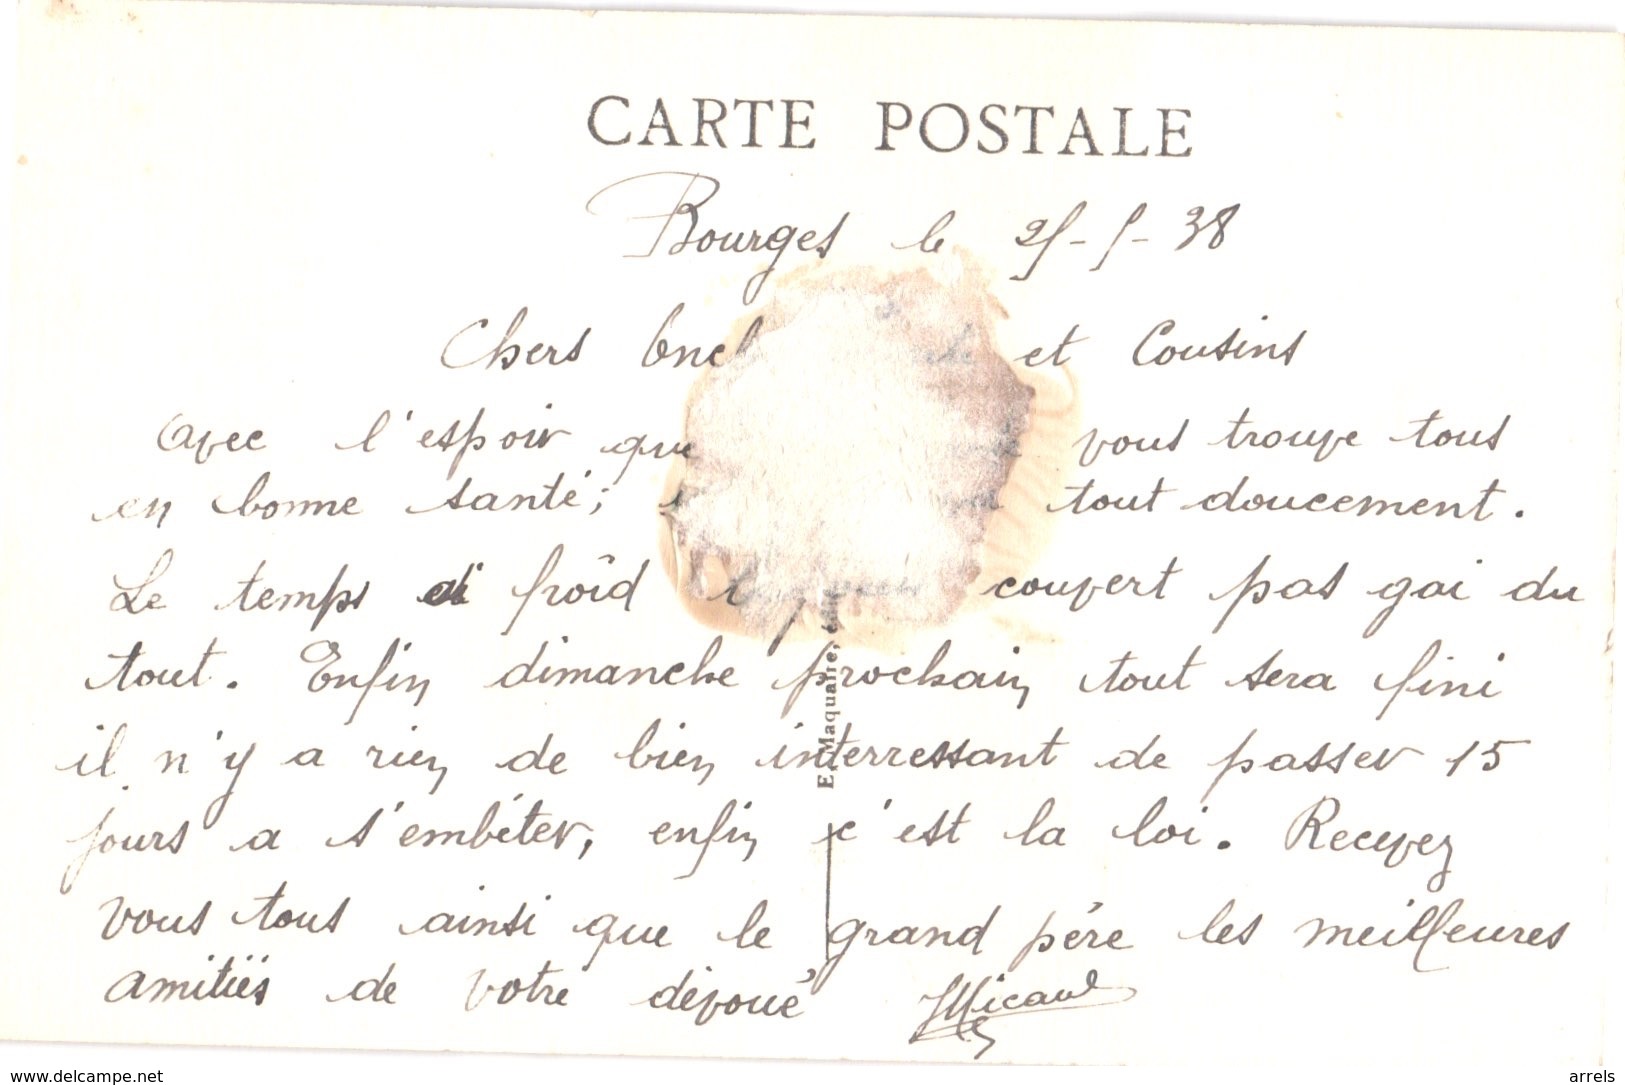 CARTE POSTALE
Bourges le 25-5-38
Chers Oncle et Cousins
Avec l'espoir que vous trouve tous
en bonne santé; tout doucement.
Le temps est froid couvert pas gai du
tout. Enfin dimanche prochain tout sera fini
il n'y a rien de bien interressant de passer 15
jours a s'embéter, enfin c'est la loi. Recevez
vous tous ainsi que le grand père les meilleures
amitiés de votre dévoué
E. Maquaire,
www.delcampe.net
arrels